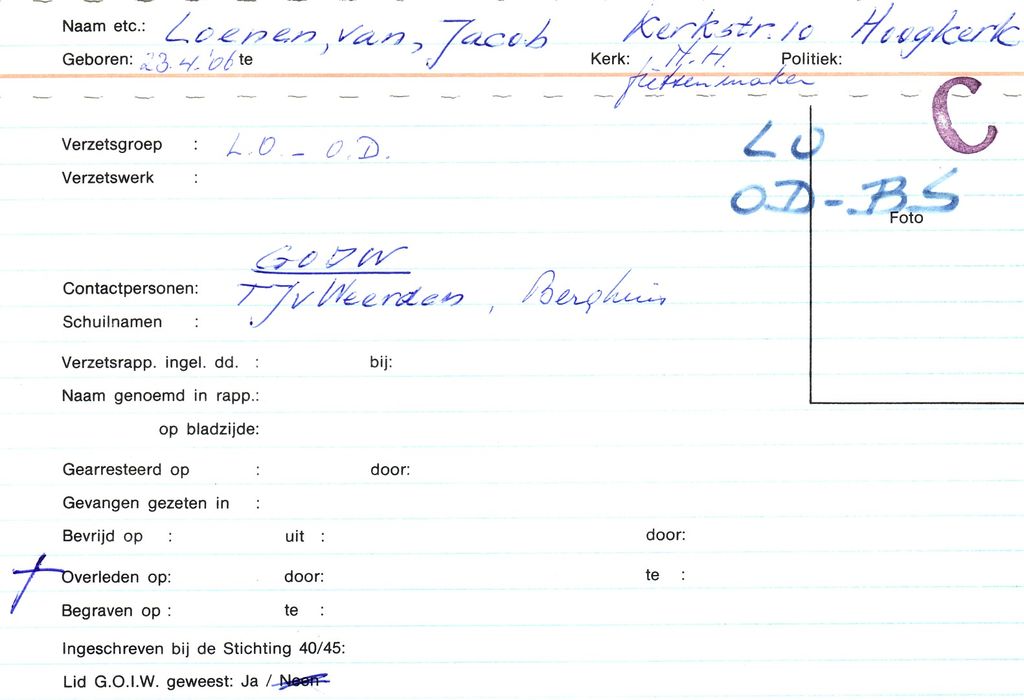 Naam etc.: Loenen, van, Jacob Kerkstr. 10 Hoogkerk
Geboren: 23.4.'06 te Kerk: N.H. Politiek:
fietsenmaker
C
Verzetsgroep : L.O. - O.D. LO
Verzetswerk :
OD-BS
Foto
GOIW
Contactpersonen: T J v Weerden, Berghuis
Schuilnamen :
Verzetsrapp. ingel. dd. : bij:
Naam genoemd in rapp.:
op bladzijde:
Gearresteerd op : door:
Gevangen gezeten in :
Bevrijd op : uit : door:
Overleden op: door: te :
Begraven op : te :
Ingeschreven bij de Stichting 40/45:
Lid G.O.I.W. geweest: Ja / Neen